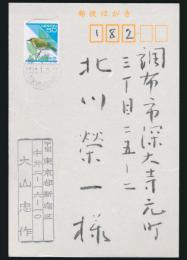 郵便はがき
182
調布市深大寺元町
三丁目二五ー二
北川榮一様
東京都新宿区
大山忠作